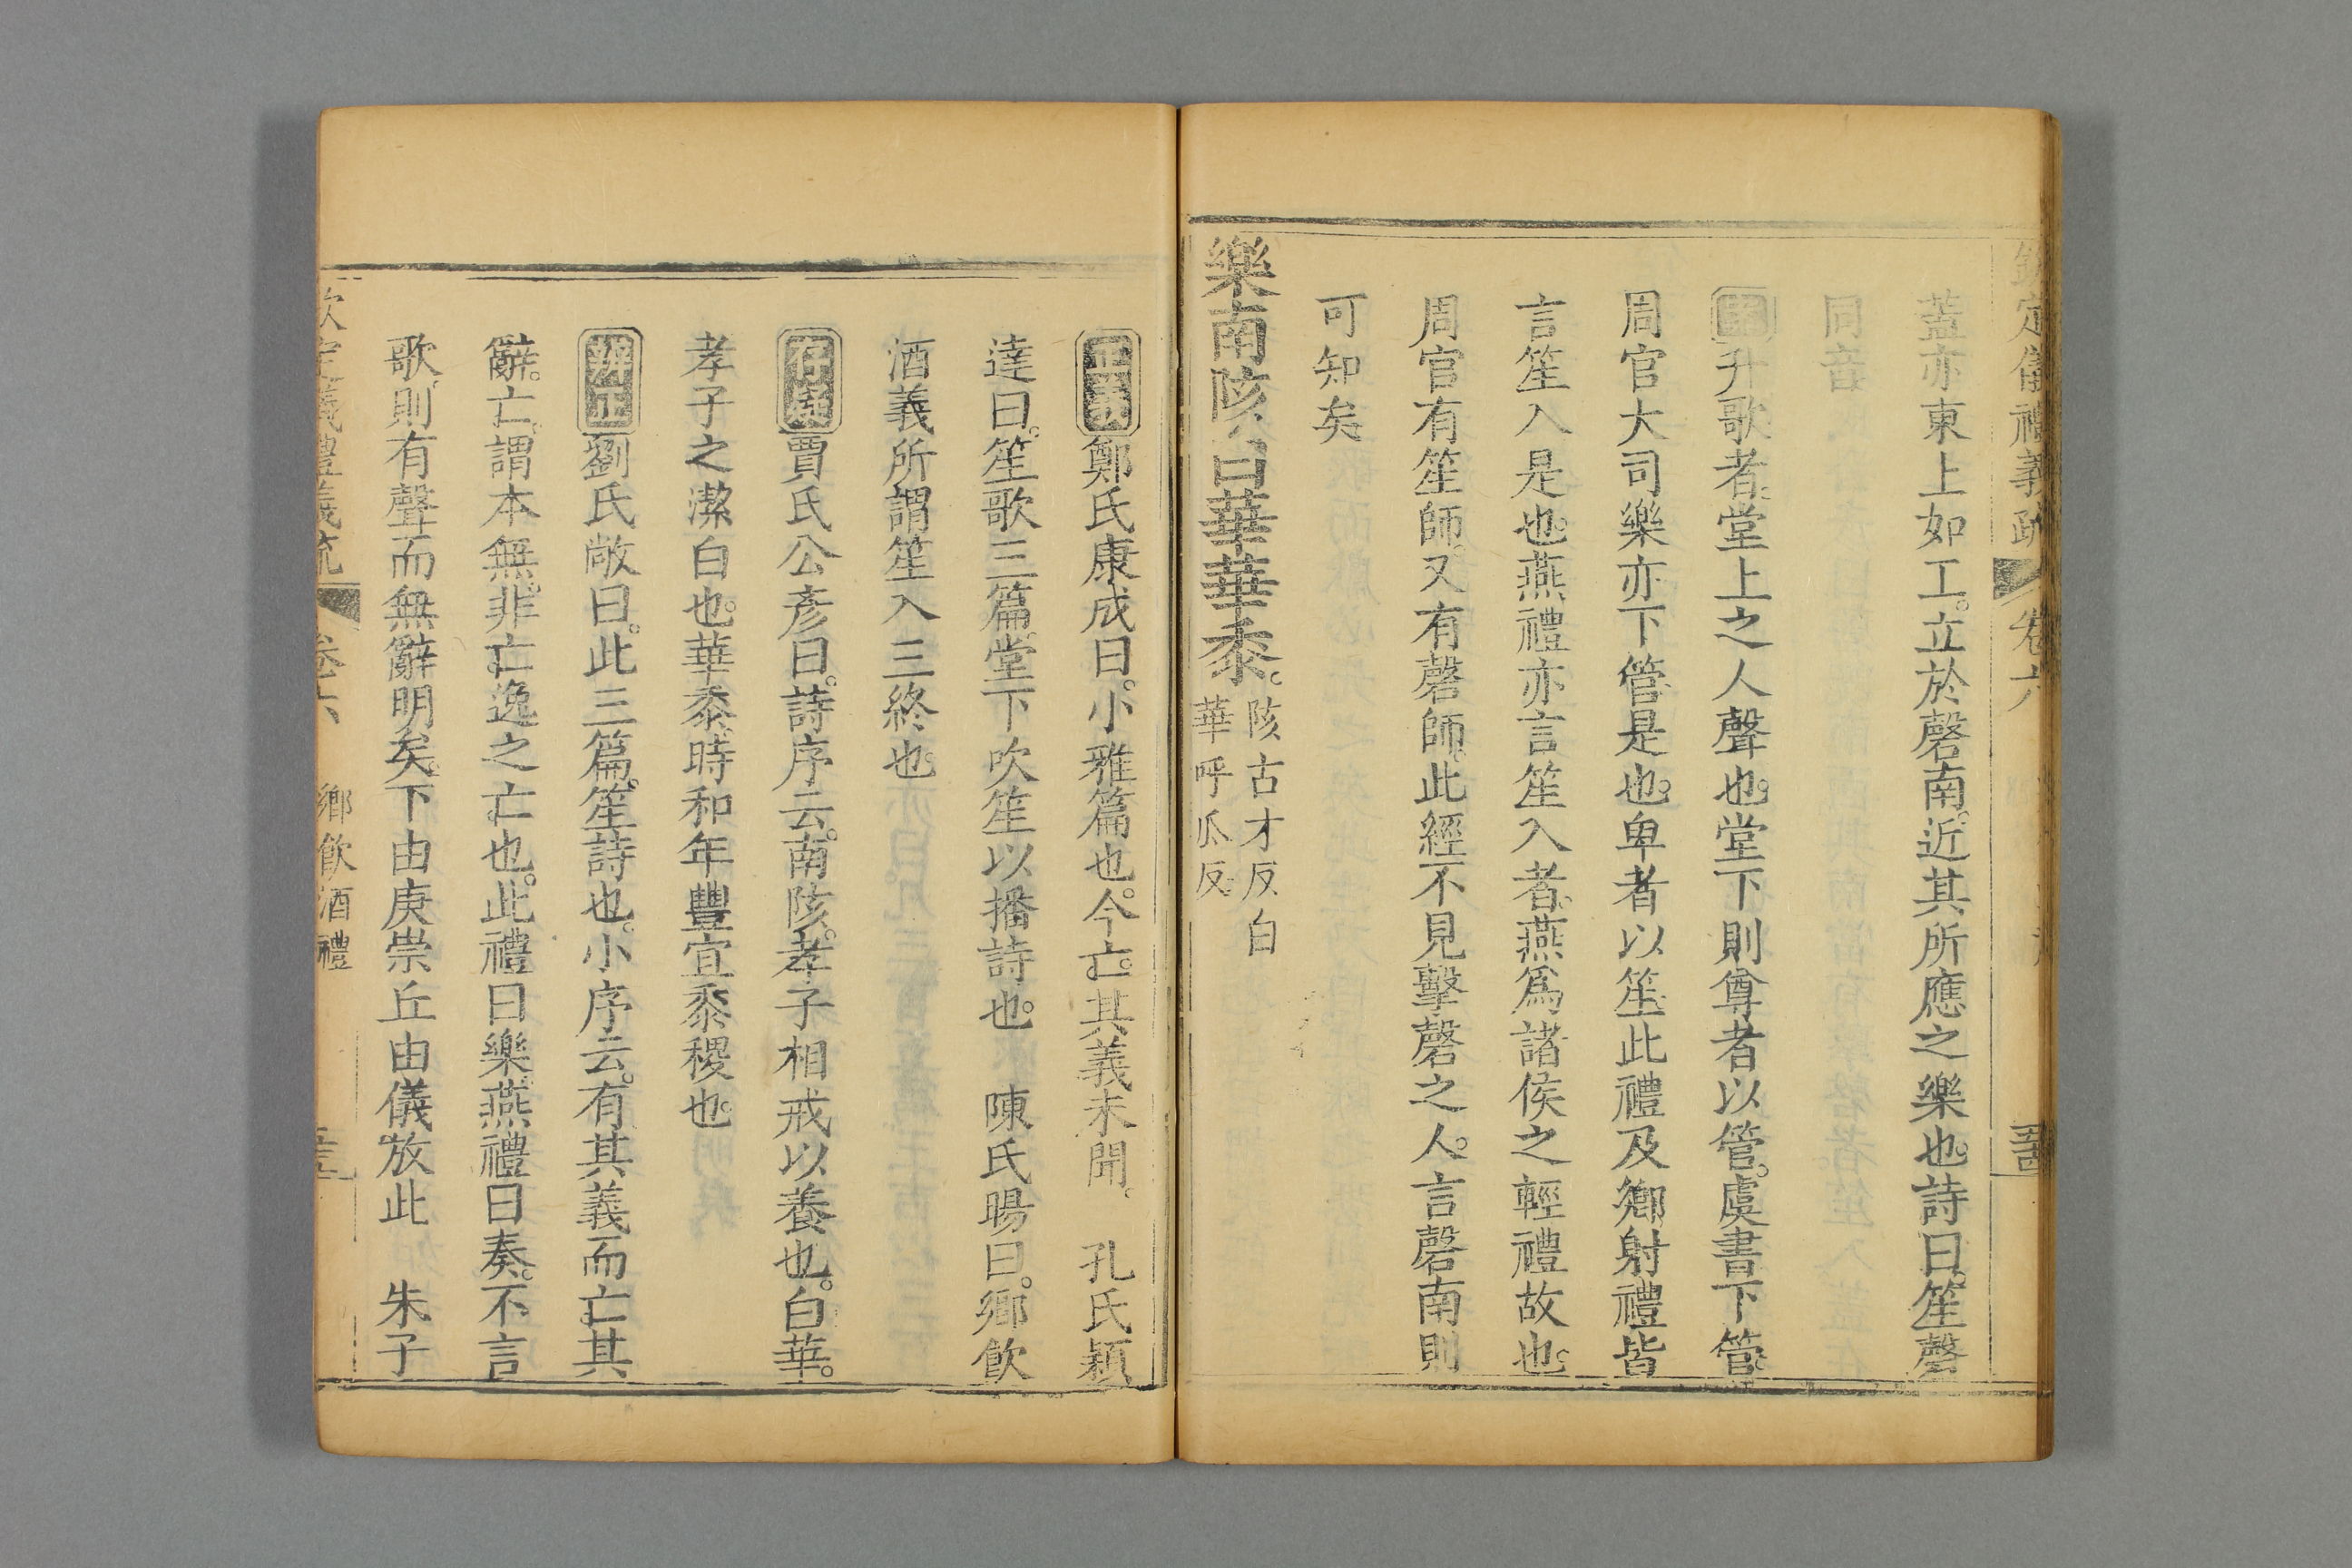 欽定儀禮義疏 卷六
蓋亦東上如工。立於磬南。近其所應之樂也。詩曰。笙磬
同音
升歌者。堂上之人聲也。堂下則尊者以管。虞書下管。
周官大司樂亦下管是也。卑者以笙。此禮及鄉射禮皆
言笙入是也。燕禮亦言笙入者。燕為諸侯之輕禮故也。
周官有笙師。又有磬師。此經不見擊磬之人。言磬南則
可知矣
樂南陔白華華黍。
陔古才反白
華呼瓜反
正義鄭氏康成曰。小雅篇也。今亡。其義未聞。 孔氏穎
達曰。笙歌三篇。堂下吹笙以播詩也。 陳氏暘曰。鄉飲
酒義所謂笙入三終也。
存疑賈氏公彥曰。詩序云。南陔。孝子相戒以養也。白華。
孝子之潔白也。華黍。時和年豐宜黍稷也。
辨正劉氏敞曰。此三篇。笙詩也。小序云。有其義而亡其
辭。亡。謂本無。非亡逸之亡也。此禮曰樂。燕禮曰奏。不言
歌。則有聲而無辭明矣。下由庚崇丘由儀放此 朱子
欽定儀禮義疏 卷六 鄉飲酒禮